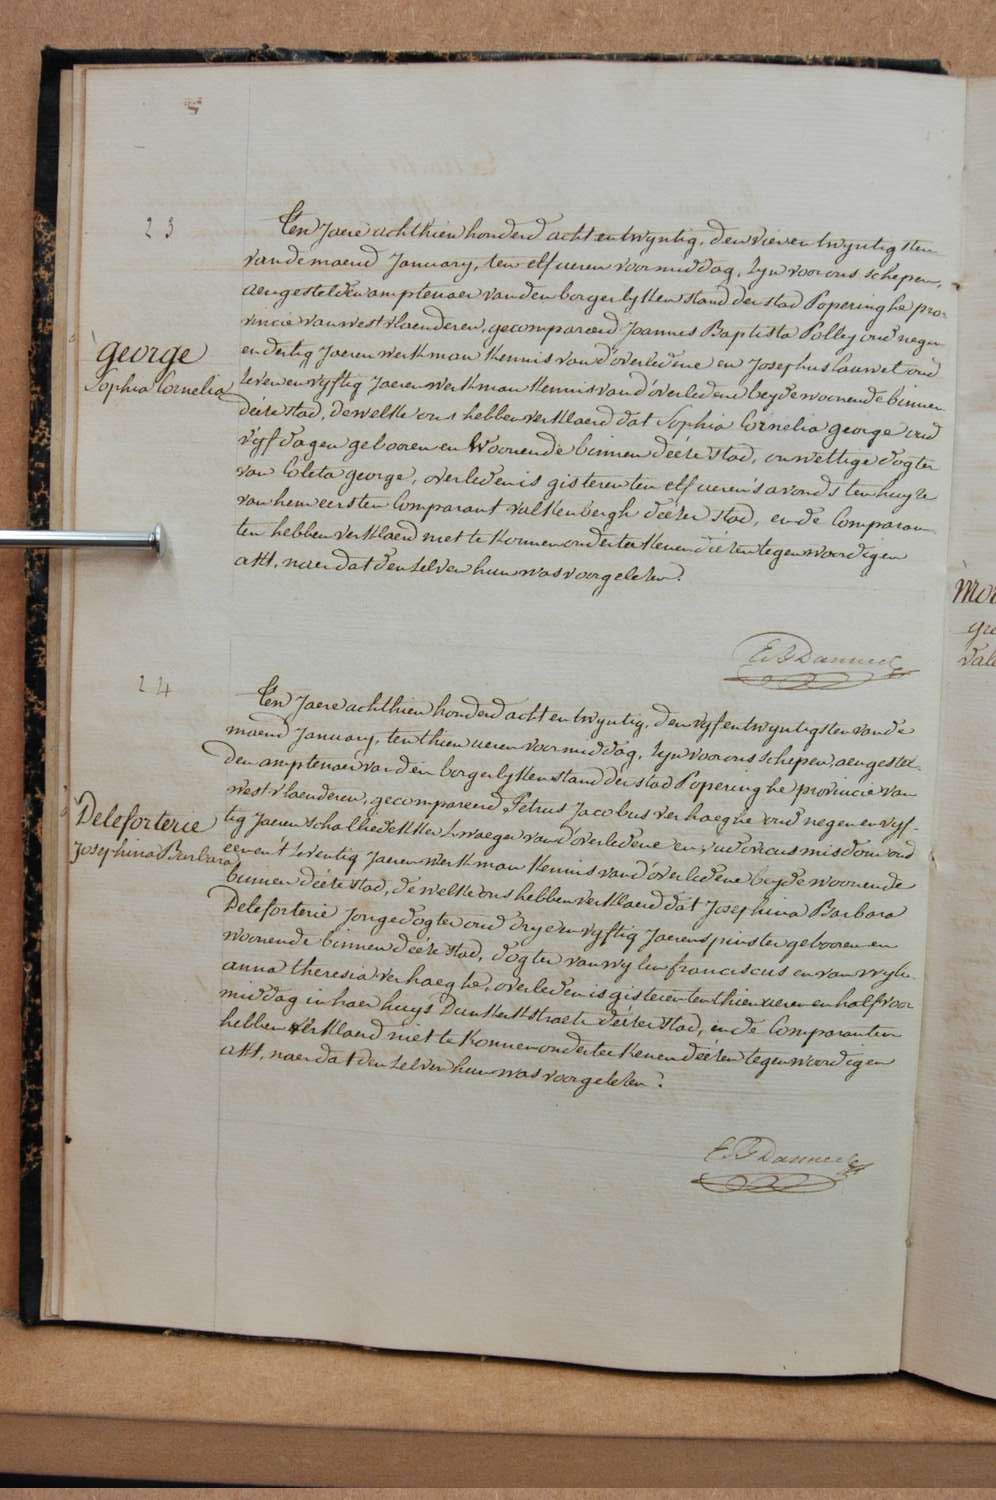 23
Ten Jaere achthien honderd acht en twyntig, den vier en twyntigsten
van de maend January, ten elf ueren voormiddag, Zyn voor ons schepen,
aengestelden amptenaer van den borgerlyken stand der stad Poperinghe pro-
vincie van westvlaenderen, gecompareerd Joannes Baptista Polley oud negen
en dertig Jaeren werkman kennis van d'overledene en Josephus Lauwet oud
zeven en vyftig Jaeren werkman kennis van d'overledene beyde woonende binnen
déze stad, de welke ons hebben verklaerd dat Sophia Cornelia george oud
vyf dagen gebooren en Woonende binnen déeze stad, onwettige dogter
van Coleta george, overleden is gisteren ten elf ueren s'avonds ten huyze
van hem eersten Comparant valkenbergh déézer stad, en de Comparan-
ten hebben verklaerd niet te konnen onderteekenen déézen tegenwoordigen
akt, naer dat den zelven hun was voorgelezen.
george
Sophia Cornelia
24
Ten Jaere achthien honderd acht en twyntig, den vyf en twyntigsten van de
maend January, ten thien ueren voormiddag, Zyn voor ons schepen, aengestel-
den amptenaer van den borgerlyken stand der stad Poperinghe provincie van
westvlaenderen, gecompareerd Petrus Jacobus verhaeghe oud negen en vyf-
tig Jaeren schaliedekker Zwaeger van d'overledene en Ludovicus misdom oud
een en t'zeventig Jaeren werkman kennis van d'overledene beyde woonende
binnen déeze stad, de welke ons hebben verklaerd dat Josephina Barbara
Deleforterie Jonge dogter oud dry en vyftig Jaeren spinster gebooren en
woonende binnen déeze stad, dogter van wylen franciscus en van wylen
anna theresia verhaeghe, overleden is gisteren ten thien ueren en half voor
middag in haer huys Dunkerkstraete déezer stad, en de Comparanten
hebben verklaerd niet te konnen onderteekenen déezen tegenwoordigen
akt, naer dat den zelven hun was voorgelezen.
Deleforterie
Josephina Barbara